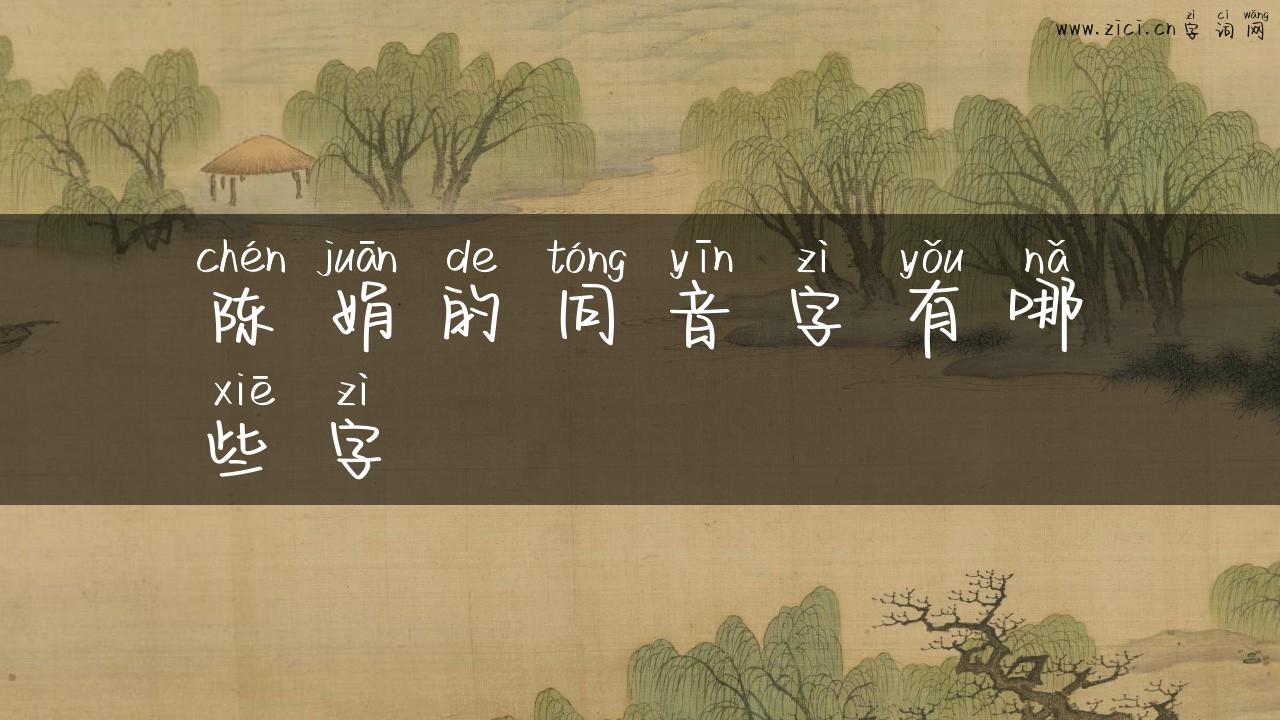 zì cí wǎng
www.zici.cn 字词网
chén juān de tóng yīn zì yǒu nǎ
陈娟的同音字有哪
xiē zì
些字